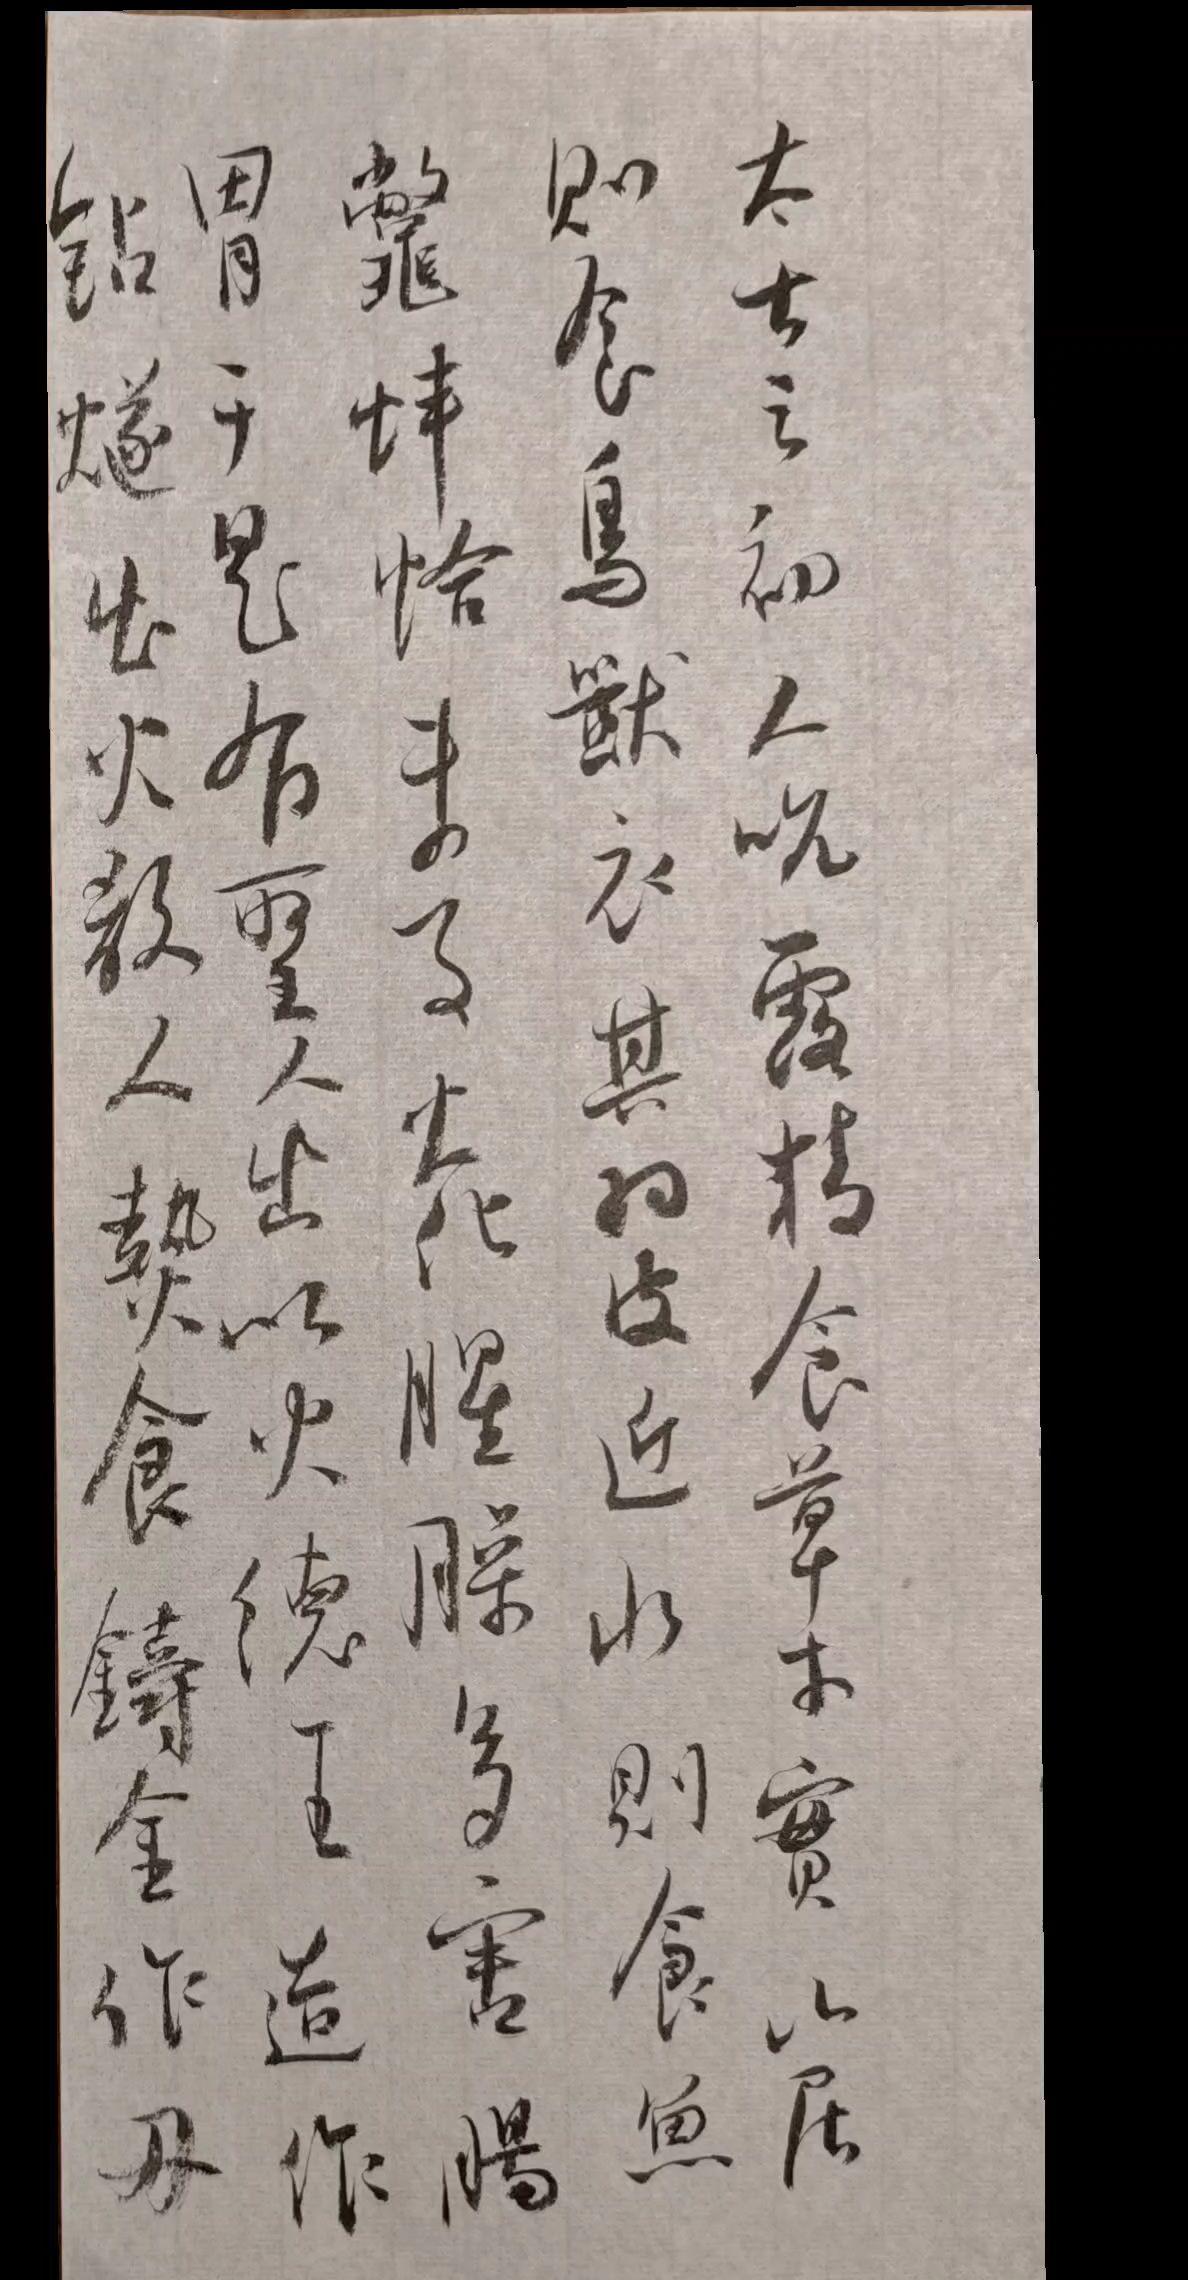 太古之初人吮露精食草木實山居
則食鳥獸衣其羽皮近水則食魚
鱉蚌蛤未有火化腥臊多害腸
胃于是有聖人出以火德王造作
鉆燧出火教人熟食鑄金作刃